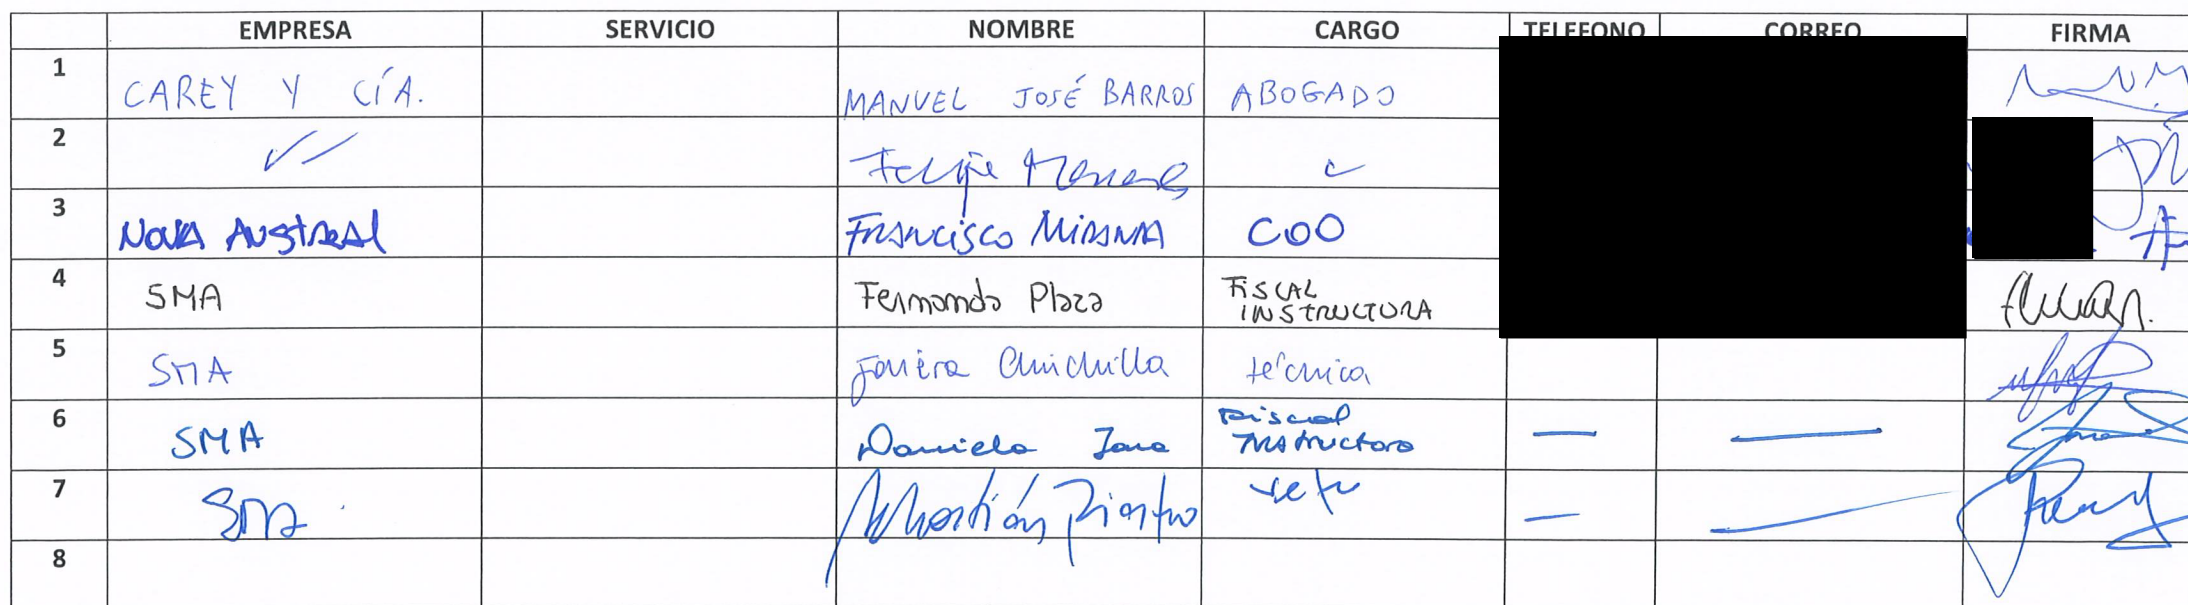 EMPRESA SERVICIO NOMBRE CARGO TELEFONO CORREO FIRMA
1 CAREY Y CÍA. MANUEL JOSÉ BARROS ABOGADO
2 Felipe
3 NOVA AUSTRAL FRANCISCO MIRANDA COO
4 SMA Fernanda Plaza FISCAL
INSTRUCTORA
5 SMA Javiera Chinchilla técnica
6 SMA Daniela Jara Fiscal
Instructora —  —
7 SMA Sebastián Riestra Jefe — —
8